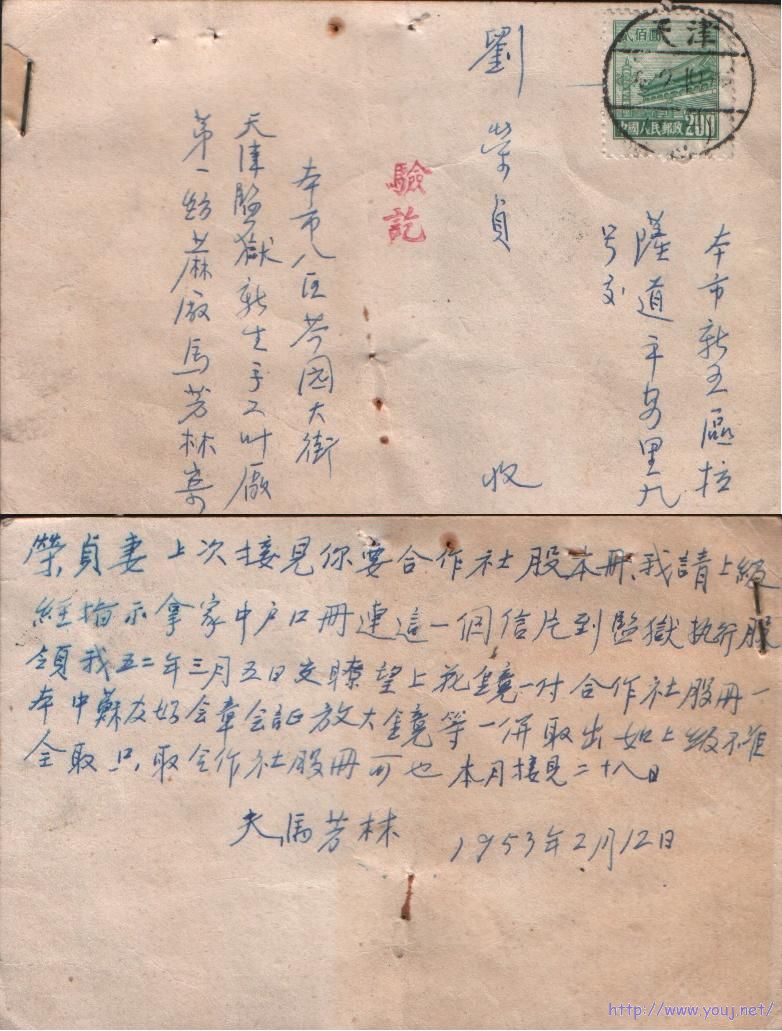 贰佰圓
中國人民郵政 200
天津
本市新五區拉
薩道平安里九
号交
劉榮貞 收
驗訖
本市八區芥园大街
天津監獄新生手工叶廠
第一紡蔴廠馬芳林寄
榮貞妻上次接見你要合作社股本冊,我請上級
經指示拿家中户口冊連這一個信片到監獄执行股
領我五二年三月五日交瞭望上花鏡一付合作社股冊一
本中蘇友好会章会証放大鏡等一併取出如上級不准
全取只取合作社股冊可也 本月接見二十八日
夫馬芳林 1953年2月12日
http://www.youj.net/